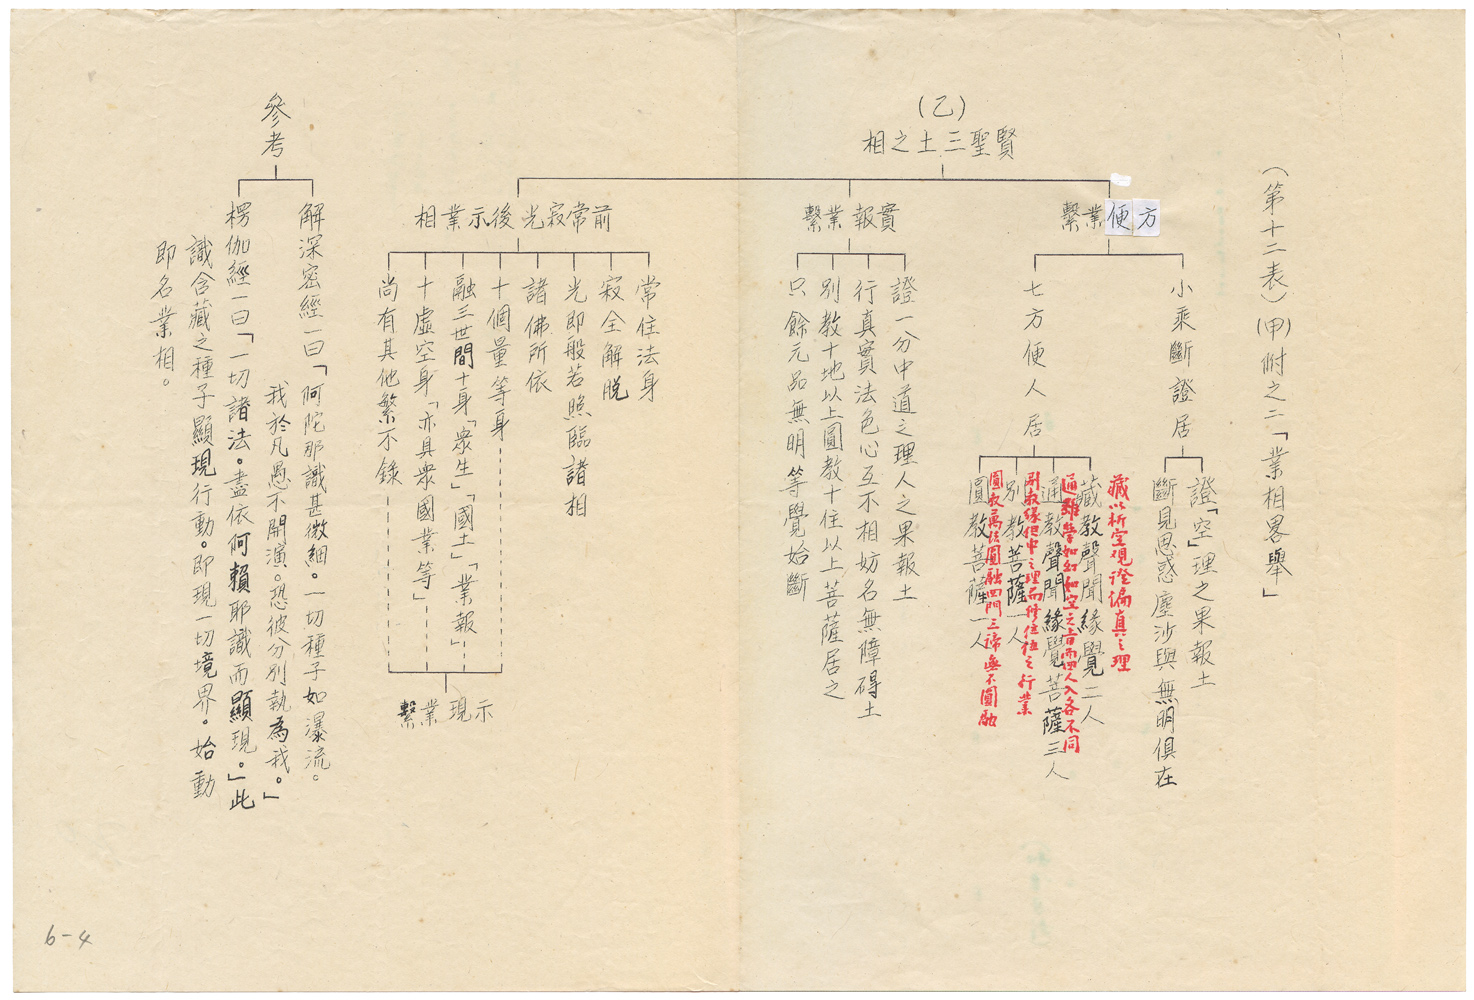 （第十二表）（甲）附之二「業相畧舉」
（乙）
賢聖三土之相
方便業繫
小乘斷證居
證「空」理之果報土
斷見思惑塵沙與無明俱在
七方便人居
藏教聲聞緣覺二人
藏以析空觀證偏真之理
通教聲聞緣覺菩薩三人
通雖學如幻如空之旨而四人入各不同
別教菩薩一人
別教緣但中之理而修位位之行業
圓教菩薩一人
圓教萬法圓融四門三諦無不圓融
實報業繫
證一分中道之理人之果報土
行真實法色心互不相妨名無障碍土
別教十地以上圓教十住以上菩薩居之
只餘元品無明等覺始斷
前常寂光後示業相
常住法身
寂全解脫
光即般若照臨諸相
諸佛所依
十個量等身
融三世間十身「眾生」「國土」「業報」
十虛空身「亦具眾國業等」
尚有其他繁不錄
示現業繫
參考
解深密經一曰「阿陀那識甚微細。一切種子如瀑流。
我於凡愚不開演。恐彼分別執為我。」
楞伽經一曰「一切諸法。盡依阿賴耶識而顯現。」此
識含藏之種子顯現行動。即現一切境界。始動
即名業相。
6-4